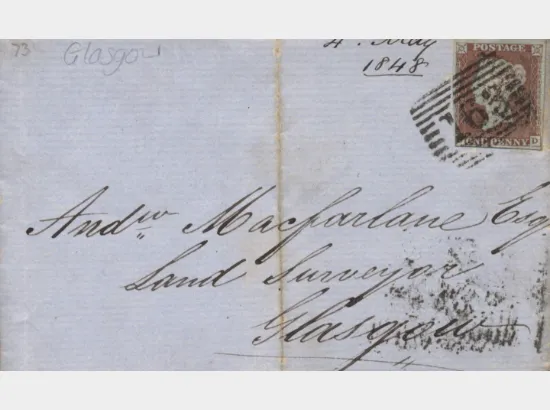 73 Glasgow
4. May
1848
POSTAGE
ONE PENNY D
Andw Macfarlane Esq
Land Surveyor
Glasgow